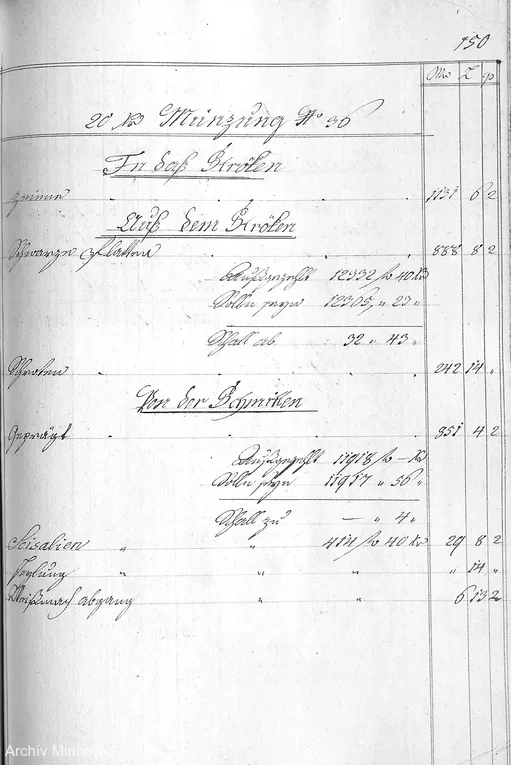 150
Mr L qp
20 Kr Münzung No 36
In daß Ströken
Zeinne 1131 6 2
Auß dem Ströken
Schwarze Platten 888 8 2
Außgezehlt 12332 fo 40 Kr
Solln seyn 12305 " 23 "
Schall ab 32 " 43 "
Schroten 242 14 "
Von der Schmitten
Geprägt 851 4 2
Außgezehlt 11918 fo — Kr
Solln seyn 11917 " 56 "
Schall zu — " 4 "
Scisalien " " 414 fo 40 Kr 29 8 2
Feylung " " " " 14 "
Weißmach abgang " " 6 13 2
Archív Mincovne